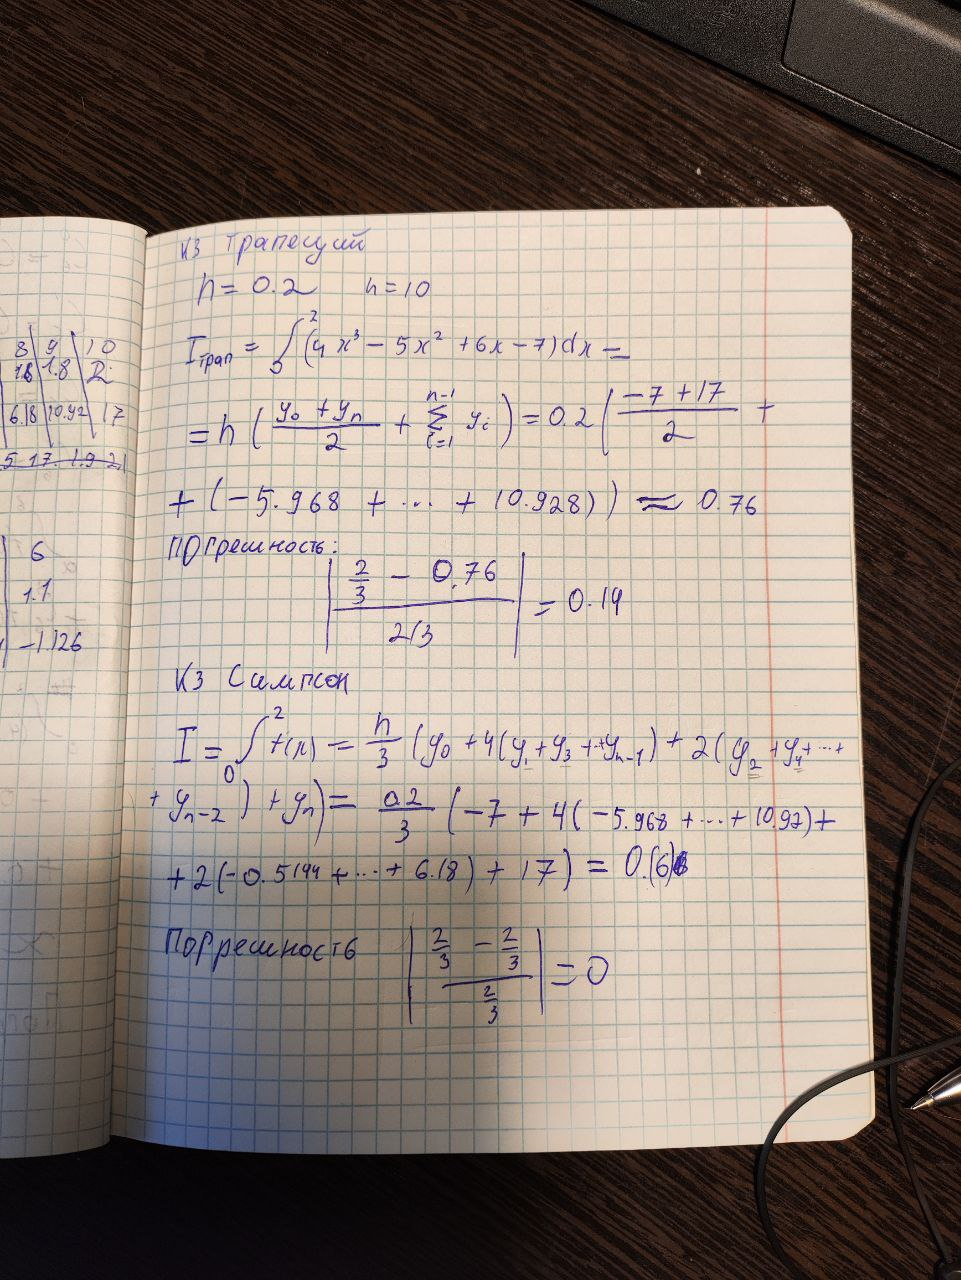 8 9 10
1.6 1.8 2
6.18 10.92 17
6
1.1
-1.126
КЗ трапеций
h = 0.2 n = 10
I трап = ∫₀² (4x³ − 5x² + 6x − 7)dx =
= h ( (y₀ + yₙ)/2 + Σᵢ₌₁ⁿ⁻¹ yᵢ ) = 0.2 ( (−7 + 17)/2 +
+ (−5.968 + ... + 10.928)) ≈ 0.76
Погрешность:
| (2/3 − 0.76) / 2/3 | = 0.14
КЗ Симпсон
I = ∫₀² f(x) = h/3 (y₀ + 4(y₁ + y₃ + ... + yₙ₋₁) + 2(y₂ + y₄ + ... +
+ yₙ₋₂) + yₙ) = 0.2/3 (−7 + 4(−5.968 + ... + 10.92) +
+ 2(−0.5144 + ... + 6.18) + 17) = 0.(6)
Погрешность | (2/3 − 2/3) / 2/3 | = 0